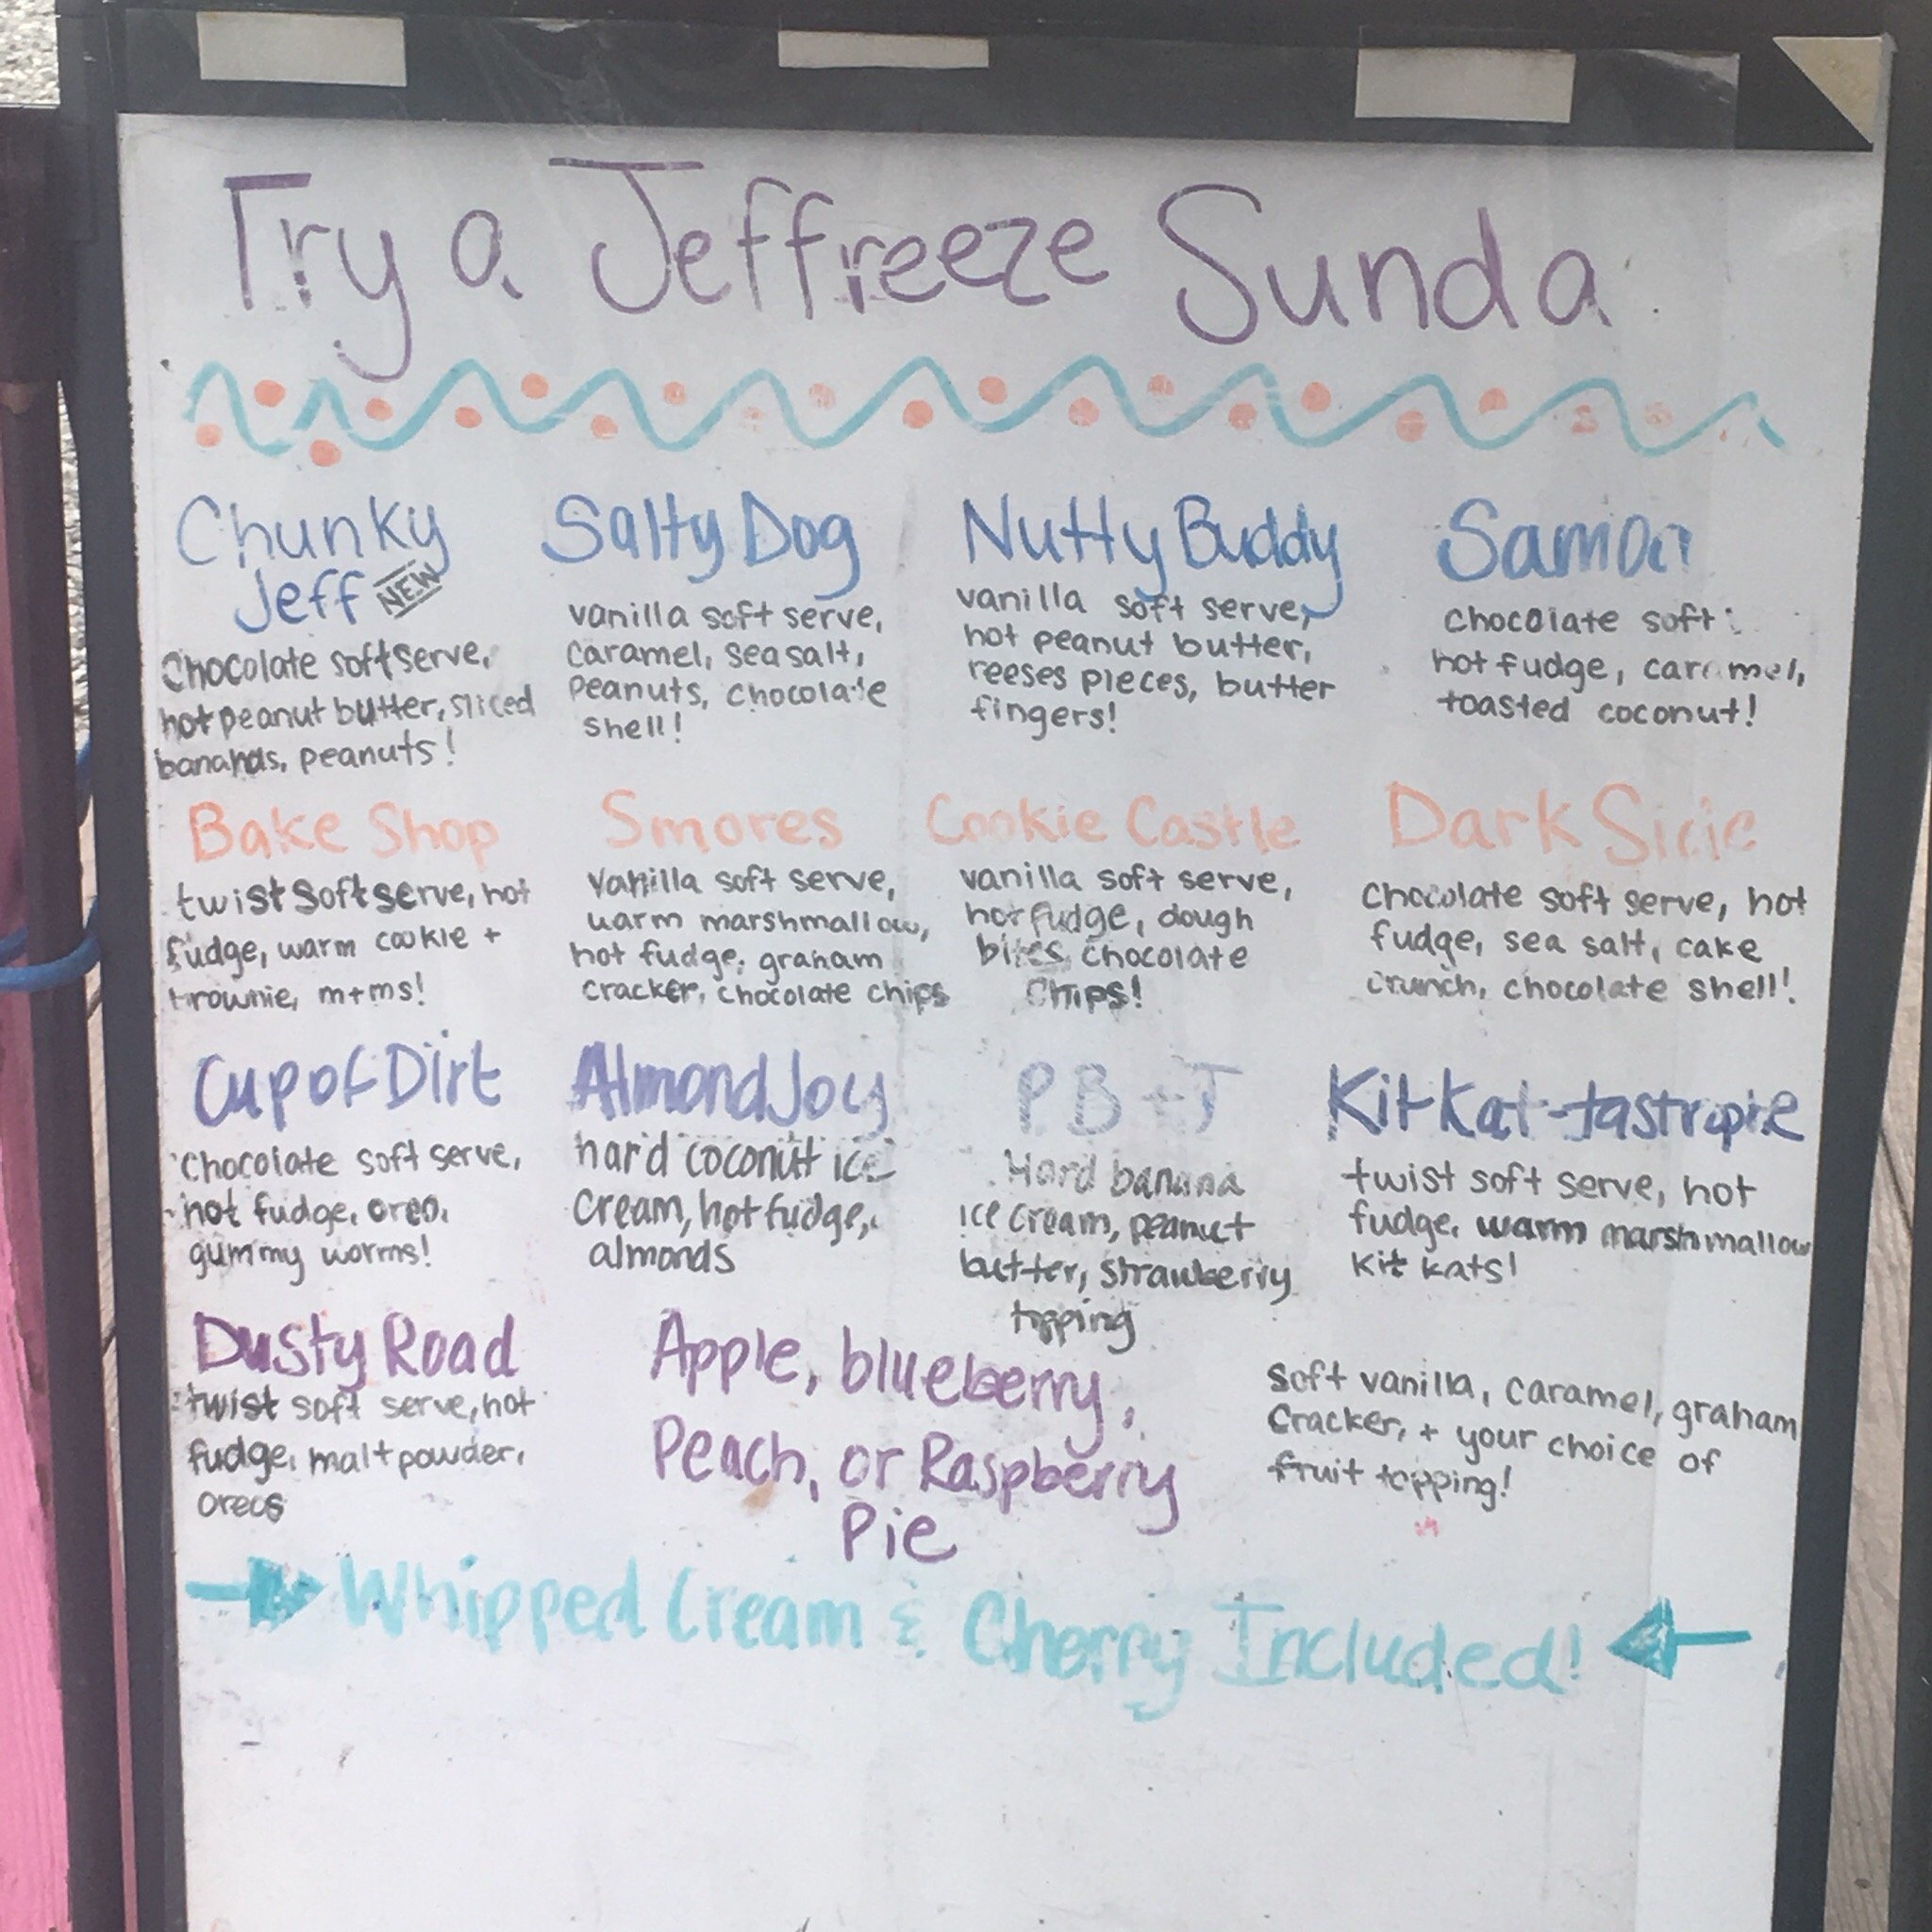 Try a Jeffreeze Sunda
Chunky
Jeff NEW
Chocolate soft serve,
hot peanut butter, sliced
bananas, peanuts!
Salty Dog
vanilla soft serve,
caramel, sea salt,
peanuts, chocolate
shell!
Nutty Buddy
vanilla soft serve,
hot peanut butter,
reeses pieces, butter
fingers!
Samoa
chocolate soft
hot fudge, caramel,
toasted coconut!
Bake Shop
twist soft serve, hot
fudge, warm cookie +
brownie, m+ms!
Smores
vanilla soft serve,
warm marshmallow,
hot fudge, graham
cracker, chocolate chips
Cookie Castle
vanilla soft serve,
hot fudge, dough
bites, chocolate
chips!
Dark Side
chocolate soft serve, hot
fudge, sea salt, cake
crunch, chocolate shell!
Cup of Dirt
chocolate soft serve,
hot fudge, oreo,
gummy worms!
Almond Joy
hard coconut ice
cream, hot fudge,
almonds
PB+J
Hard banana
ice cream, peanut
butter, strawberry
topping
Kit Kat-tastropie
twist soft serve, hot
fudge, warm marshmallow
kit kats!
Dusty Road
twist soft serve, hot
fudge, malt powder,
oreos
Apple, blueberry,
Peach, or Raspberry
Pie
soft vanilla, caramel, graham
cracker, + your choice of
fruit topping!
Whipped Cream & Cherry Included!